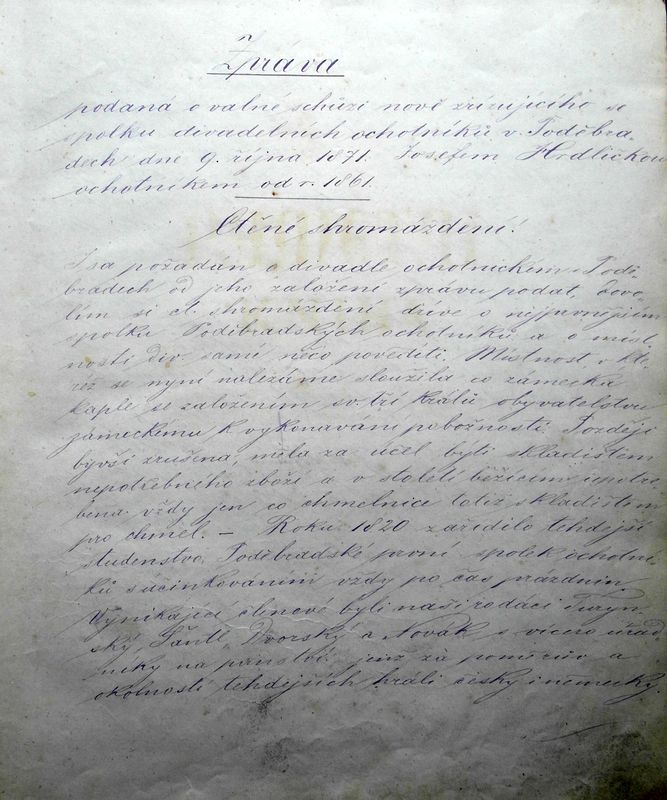 Zpráva
podaná o valné schůzi nově zřizujícího se
spolku divadelních ochotníků v Poděbra-
dech dne 9. října 1871. Josefem Hrdličkou
ochotníkem od r. 1861.
Ctěné shromáždění!
Jsa požádán o divadle ochotnickém v Podě-
bradech od jeho založení zprávu podat, dovo-
lím si ct. shromáždění dříve o nejprvnějším
spolku Poděbradských ochotníků a o míst-
nosti div. samé něco pověditi. Místnost, v kte-
réž se nyní nalezáme sloužila co zámecká
kaple se založením sv. tří králů obyvatelstvu
zámeckému k vykonávání pobožnosti. Později
byvši zrušena měla za účel býti skladištěm
nepotřebného zboží a v století běžícím upotře-
bena vždy jen co chmelnice totiž skladištěm
pro chmel. — Roku 1820 zařídilo tehdejší
studenstvo Poděbradské první spolek ochotní-
ků s účinkováním vždy po čas prázdnin.
Vynikající členové byli naši rodáci Turyn-
ský, Šantl, Dvorský a Novák s vícero úřad-
níky na panství jenž za poměrův a
okolností tehdejších hráli česky i německy